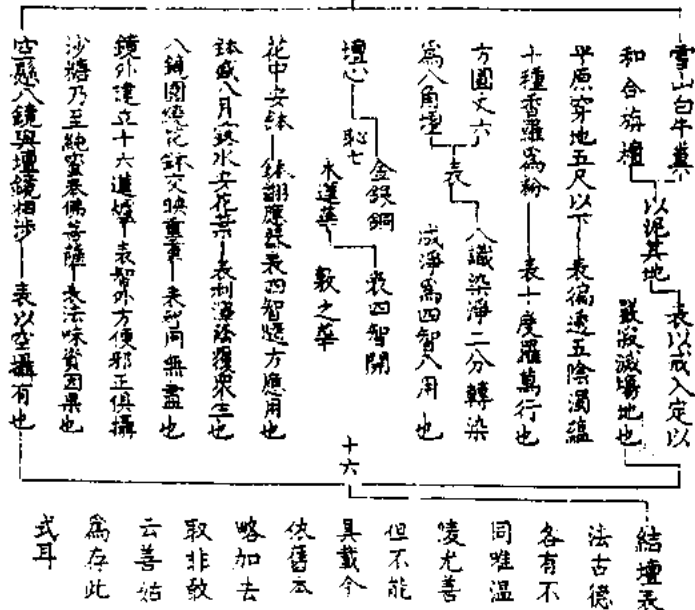 雪山白牛糞
和合旃檀
以泥其地
表以戒入定以
嚴寂滅場地也
平原穿地五尺以下 表徧透五陰濁蘊
十種香羅為粉 表十度羅萬行也
方圓丈六
為八角壇
表
八識染淨二分轉染
成淨為四智八用也
壇心
恥七
金銀銅
木蓮華
表四智開
敷之華
花中安鉢 鉢謂應器表四智隨方應用也
鉢盛八月露水安花葉 表利澤法覆衆生也
八鏡圍繞花鉢交映重重 表智用無盡也
鏡外建立十六蓮爐 表智外方便邪正俱攝
沙糖乃至純蜜奉佛菩薩 表法味資因果也
空懸八鏡與壇鏡相涉 表以空攝有也
十六
結壇表
法古德
各有不
同唯溫
陵尤善
但不能
具載今
依舊本
略加去
取非敢
云善姑
為存此
式耳